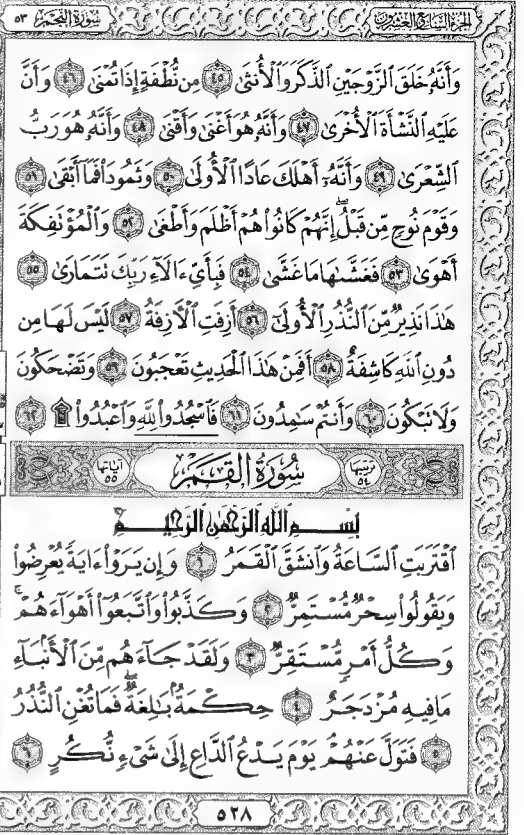 سورة النجم ٥٣
الجزء السابع والعشرون
وَأَنَّهُۥ خَلَقَ ٱلزَّوْجَيْنِ ٱلذَّكَرَ وَٱلْأُنثَىٰ ٤٥ مِن نُّطْفَةٍ إِذَا تُمْنَىٰ ٤٦ وَأَنَّ
عَلَيْهِ ٱلنَّشْأَةَ ٱلْأُخْرَىٰ ٤٧ وَأَنَّهُۥ هُوَ أَغْنَىٰ وَأَقْنَىٰ ٤٨ وَأَنَّهُۥ هُوَ رَبُّ
ٱلشِّعْرَىٰ ٤٩ وَأَنَّهُۥٓ أَهْلَكَ عَادًا ٱلْأُولَىٰ ٥٠ وَثَمُودَا۟ فَمَآ أَبْقَىٰ ٥١
وَقَوْمَ نُوحٍ مِّن قَبْلُ ۖ إِنَّهُمْ كَانُوا۟ هُمْ أَظْلَمَ وَأَطْغَىٰ ٥٢ وَٱلْمُؤْتَفِكَةَ
أَهْوَىٰ ٥٣ فَغَشَّىٰهَا مَا غَشَّىٰ ٥٤ فَبِأَىِّ ءَالَآءِ رَبِّكَ تَتَمَارَىٰ ٥٥
هَٰذَا نَذِيرٌ مِّنَ ٱلنُّذُرِ ٱلْأُولَىٰٓ ٥٦ أَزِفَتِ ٱلْـَٔازِفَةُ ٥٧ لَيْسَ لَهَا مِن
دُونِ ٱللَّهِ كَاشِفَةٌ ٥٨ أَفَمِنْ هَٰذَا ٱلْحَدِيثِ تَعْجَبُونَ ٥٩ وَتَضْحَكُونَ
وَلَا تَبْكُونَ ٦٠ وَأَنتُمْ سَٰمِدُونَ ٦١ فَٱسْجُدُوا۟ لِلَّهِ وَٱعْبُدُوا۟ ۩ ٦٢
ترتيبها ٥٤ سورة القمر آياتها ٥٥
بِسْمِ ٱللَّهِ ٱلرَّحْمَٰنِ ٱلرَّحِيمِ
ٱقْتَرَبَتِ ٱلسَّاعَةُ وَٱنشَقَّ ٱلْقَمَرُ ١ وَإِن يَرَوْا۟ ءَايَةً يُعْرِضُوا۟
وَيَقُولُوا۟ سِحْرٌ مُّسْتَمِرٌّ ٢ وَكَذَّبُوا۟ وَٱتَّبَعُوٓا۟ أَهْوَآءَهُمْ ۚ
وَكُلُّ أَمْرٍ مُّسْتَقِرٌّ ٣ وَلَقَدْ جَآءَهُم مِّنَ ٱلْأَنۢبَآءِ
مَا فِيهِ مُزْدَجَرٌ ٤ حِكْمَةٌۢ بَٰلِغَةٌ ۖ فَمَا تُغْنِ ٱلنُّذُرُ
٥ فَتَوَلَّ عَنْهُمْ ۘ يَوْمَ يَدْعُ ٱلدَّاعِ إِلَىٰ شَىْءٍ نُّكُرٍ ٦
٥٢٨